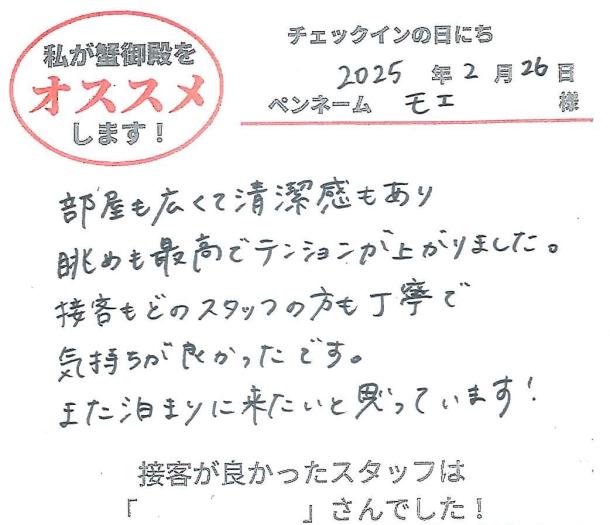 私が蟹御殿を
オススメ
します！
チェックインの日にち
2025 年 2 月 26 日
ペンネーム モエ 様
部屋も広くて清潔感もあり
眺めも最高でテンションが上がりました。
接客もどのスタッフの方も丁寧で
気持ちが良かったです。
また泊まりに来たいと思っています！
接客が良かったスタッフは
「　　　　　　」さんでした！